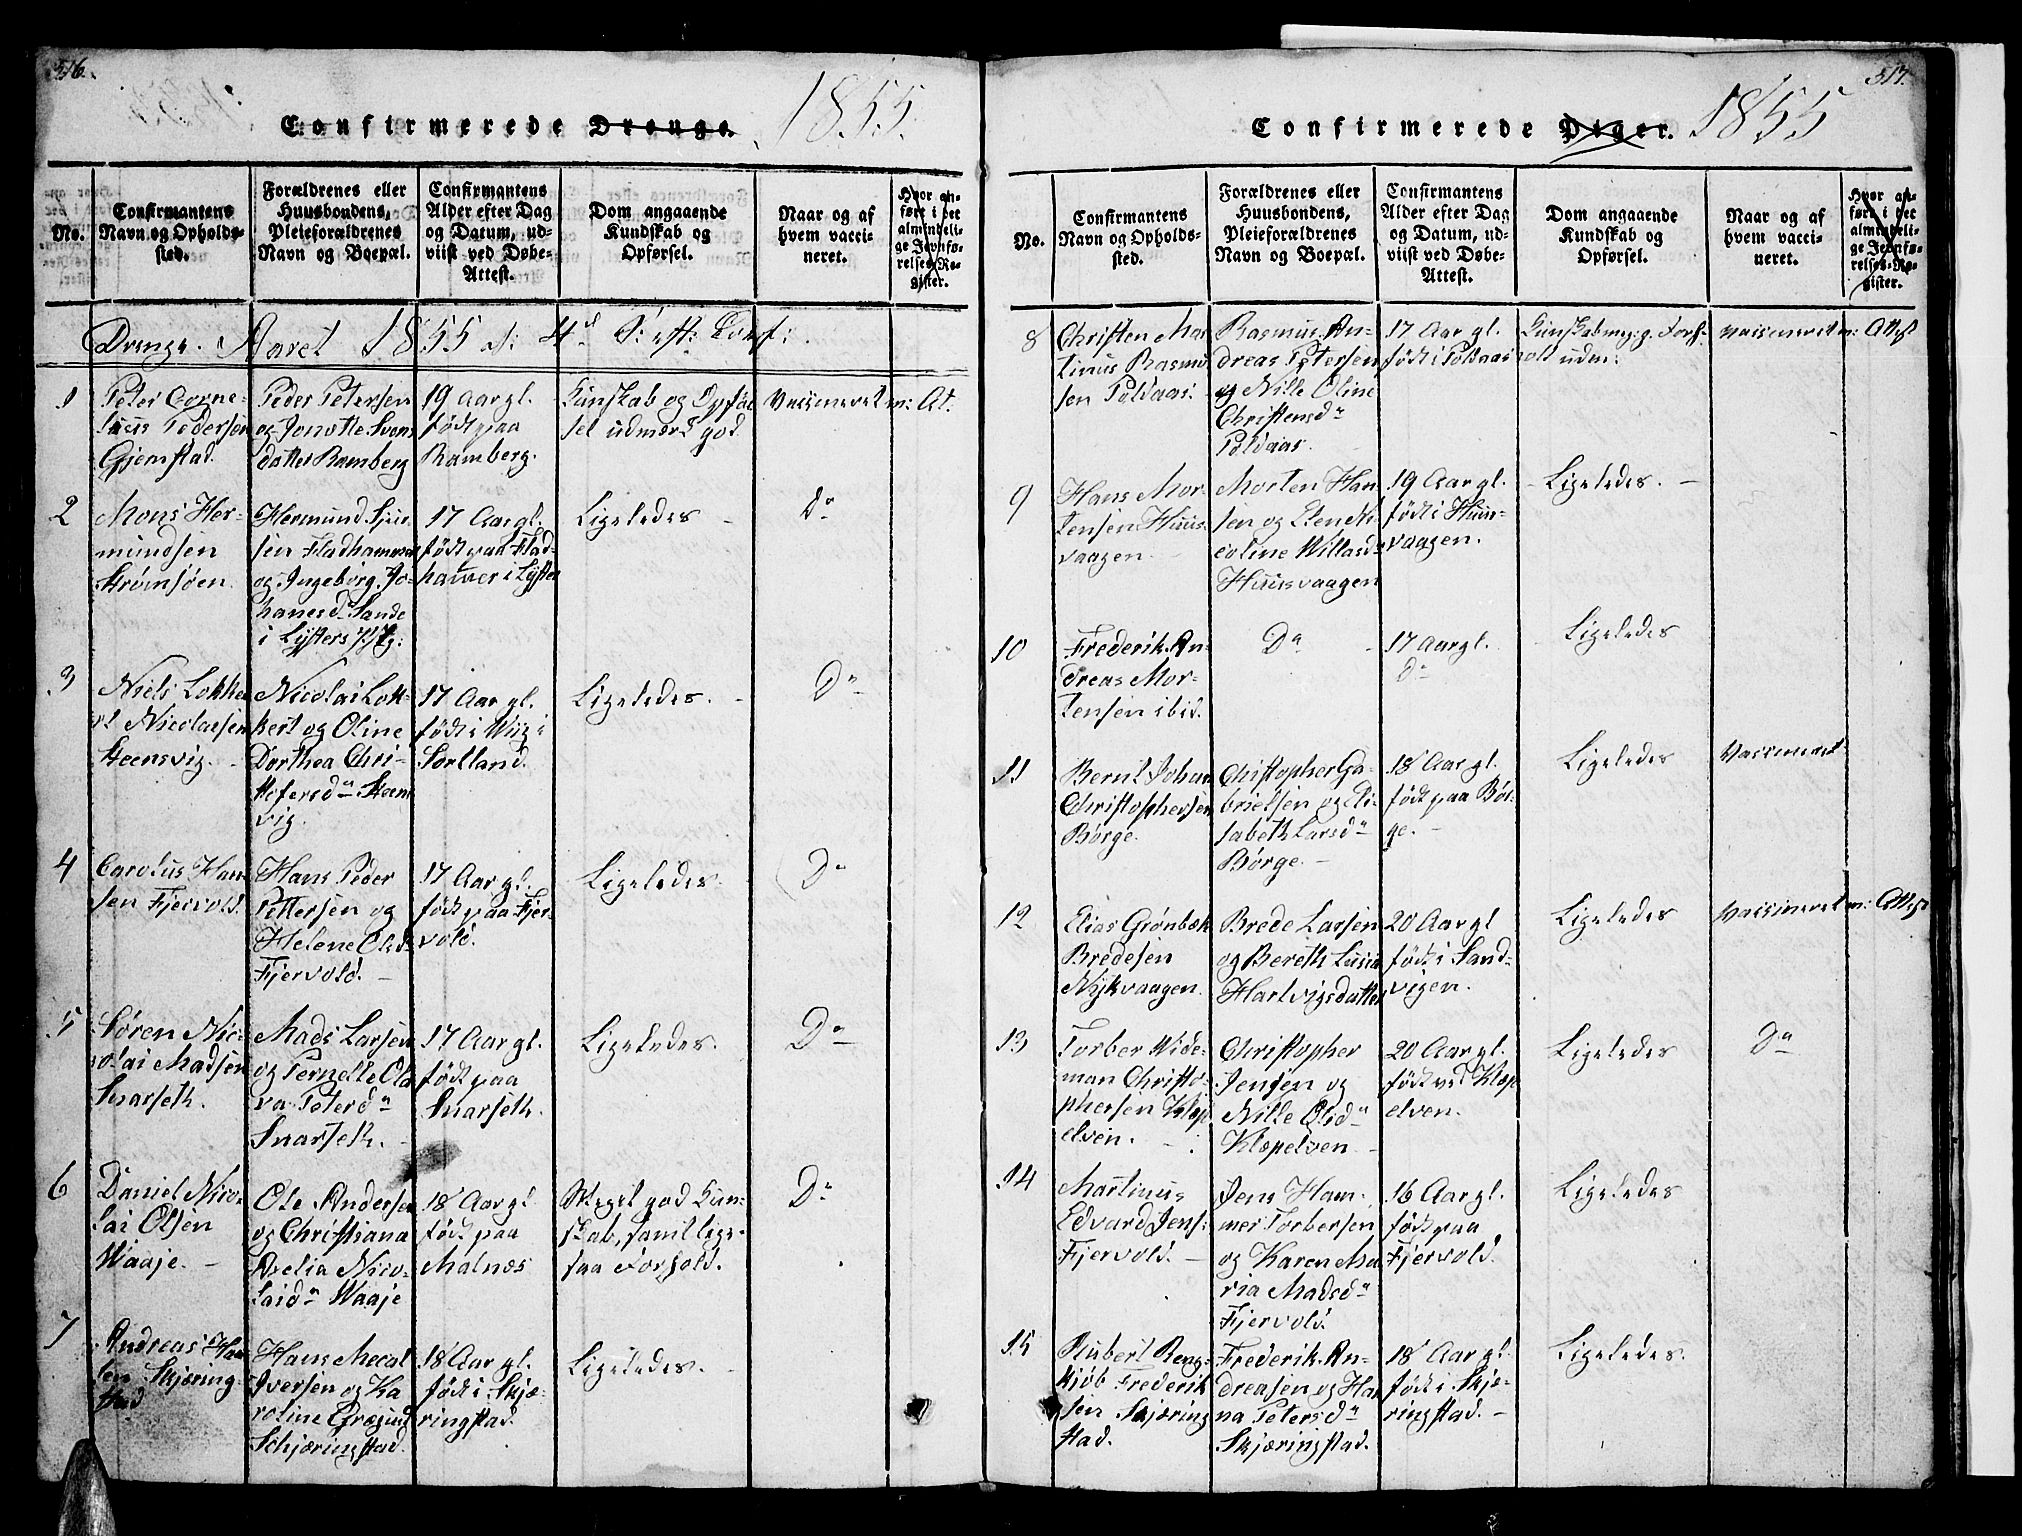 316.
Confirmerede Drenge. 1855.
No.
Confirmantens
Navn og Opholds-
sted.
Forældrenes eller
Huusbondens,
Pleieforældrenes
Navn og Boepæl.
Confirmantens
Alder efter Dag
og Datum, ud-
viist ved Døbe-
Attest.
Dom angaaende
Kundskab og
Opførsel.
Naar og af
hvem vacci-
neret.
Hvor an-
ført i det
almindeli-
ge Jevnfø-
relses-Re-
gister.
Drenge. Aaret 1855
1
Peter Corne-
lius Pedersen
Gjemstad.
Peder Petersen
og Jonette Svens
datter Ramberg
19 Aar gl.
født paa
Ramberg.
Kunskab og Opför
sel udmærk god.
Vaccineret m: At.
2
Mons Her-
mundsen
Strømsøen.
Hermund Sjur
sen Fladhammer
og Ingeborg Jo-
hanesd. Sande
i Lysters
17 Aar gl.
født paa Flad-
hamer i Lyster
Ligeledes -
Do
3
Niels Lokke
rt Nicolaisen
Steensvig. -
Nicolai Lok-
kert og Oline
Dorthea Chri-
stofersdr Steens
vig.
17 Aar gl.
født i Wiig i
Sortland.
Ligeledes. -
Do
4
Carolus Han
sen Fjervold.
Hans Peder
Pettersen og
Helene Olsdr
Fjervold. -
17 Aar gl.
født paa Fjer-
vold.
Ligeledes.
Do
5
Sören Nic-
olai Madsen
Snarseth.
Mads Larsen
og Pernelle Ola
va Petersdr
Snarseth. -
17 Aar gl.
født paa
Snarseth.
Ligeledes.
Do
6
Daniel Nico-
lai Olsen
Waaje. -
Ole Andersen
og Christiana
Arelia Nico-
laidr Waaje
18 Aar gl.
født paa
Malnæs
Meget god Kun-
skab, samt lige-
saa Forhold.
Do
7
Andreas Han
sen Skjæring
stad
Hans Mecal
Iversen og Ka
roline Grægusd
Schjæringstad.
18 Aar gl.
født i Skjæ-
ringstad.
Ligeledes. -
317.
Confirmerede Piger. 1855
No.
Confirmantens
Navn og Opholds-
sted.
Forældrenes eller
Huusbondens,
Pleieforældrenes
Navn og Boepæl.
Confirmantens
Alder efter Dag
og Datum, ud-
viist ved Døbe-
Attest.
Dom angaaende
Kundskab og
Opførsel.
Naar og af
hvem vacci-
neret.
Hvor an-
ført i det
almindeli-
ge Jevnfø-
relses-Re-
gister.
8
Christen Mar
tinus Rasmu
sen Poldaas.
Rasmus An-
dreas Petersen
og Nille Oline
Christensdr
Poldaas.
17 Aar gl.
født i Poldaas
Kunskab mg: g. Forh-
old udm:
Vaccineret m: Attest
9
Hans Mor-
tensen Huus-
vaagen. -
Morten Han
sen og
coline Willasdr
Huusvaagen
19 Aar gl.
født i Huus-
vaagen.
- Ligeledes. -
10
Frederik An-
dreas Mor-
tensen ibid.
Do
17 Aar gl.
Do
Ligeledes
11
Bernt Johan
Christophersen
Børge.
Christopher Ga-
brielsen og Eli-
sabeth Larsdr
Børge. -
18 Aar gl.
født paa Bör-
ge. -
Ligeledes
Vaccineret
12
Elias Grønbæk
Bredesen
Nykvaagen.
Brede Larsen
og Bereth Lusia
Hartvigsdatter
20 Aar gl
født i Sand-
vigen.
Ligeledes
Vaccineret m: Attest
13
Torber Wide-
man Christo-
phersen Klep
elven. -
Christopher
Jensen og
Nille Olsdr
Klæpelven -
20 Aar gl.
født ved Klæp
elven.
Ligeledes
Do
14
Martinus
Edvard Jens:
Fjervold. -
Jens Ham-
mer Torbersen
og Karen Ma
ria Madsdr
Fjervold.
16 Aar gl.
født paa
Fjervold.
Ligeledes
15
Rubert Beng-
kjöb Frederik
sen Skjæring
stad.
Frederik An-
dreasen og Han
na Petersdr
Skjæringstad.
18 Aar gl.
født i Skjæ-
ringstad. -
Ligeledes.